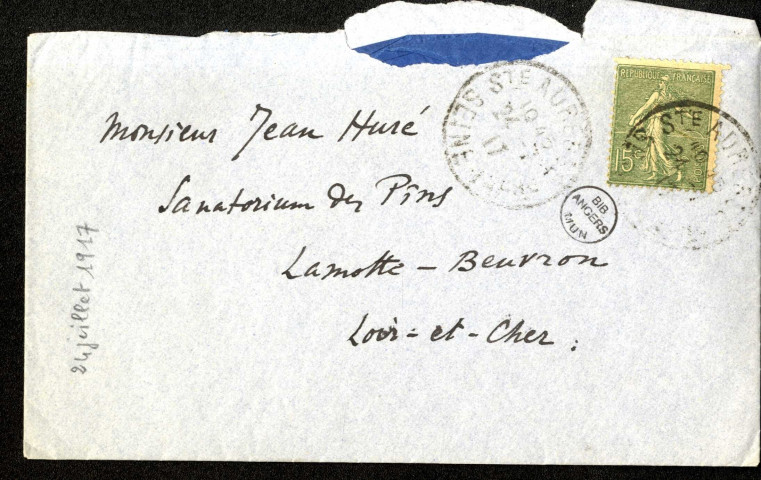 Monsieur Jean Huré
Sanatorium des Pins
Lamotte-Beuvron
Loir-et-Cher.
24 juillet 1917
RÉPUBLIQUE FRANÇAISE
15c
STE AURE
24
17
BIB
ANGERS
MUN
STE AURE